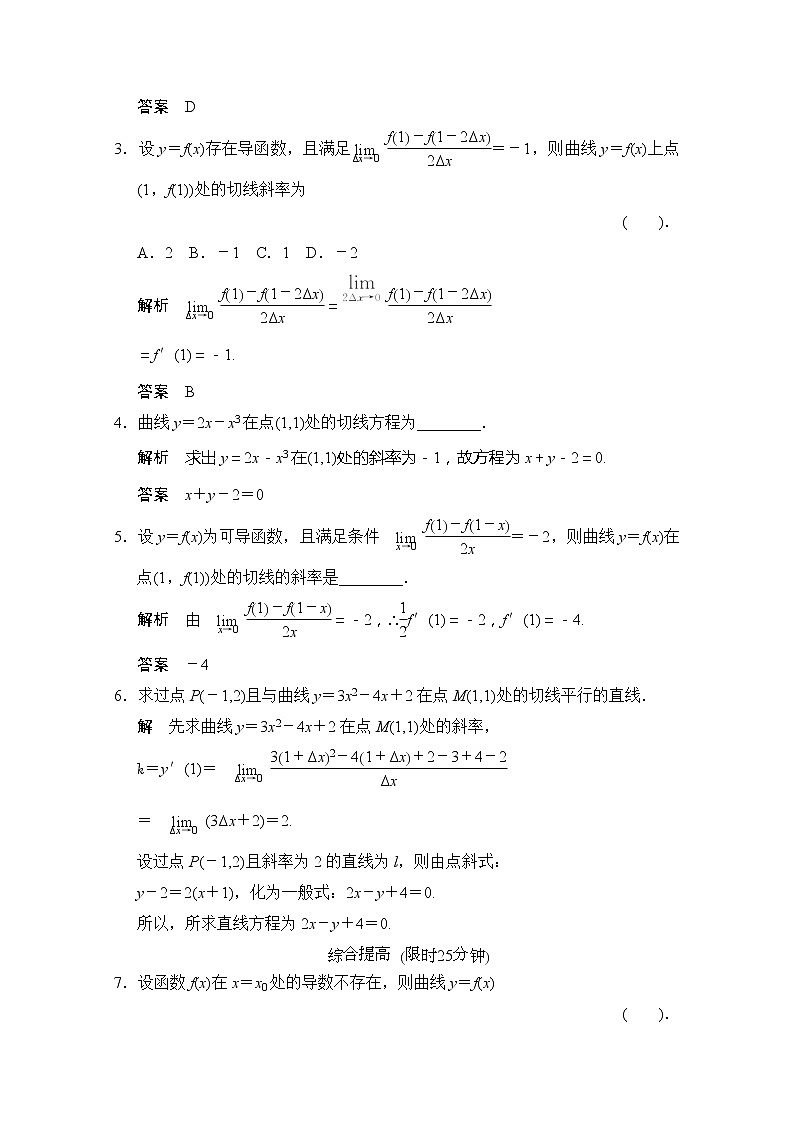 答案　D
3．设y＝f(x)存在导函数，且满足lim Δx→0 f(1)－f(1－2Δx)/2Δx＝－1，则曲线y＝f(x)上点
(1，f(1))处的切线斜率为
(　　)．
A．2　B．－1　C．1　D．－2
解析　lim Δx→0 f(1)－f(1－2Δx)/2Δx＝lim 2Δx→0 f(1)－f(1－2Δx)/2Δx
＝f′(1)＝－1.
答案　B
4．曲线y＝2x－x³在点(1,1)处的切线方程为________．
解析　求出y＝2x－x³在(1,1)处的斜率为－1，故方程为x＋y－2＝0.
答案　x＋y－2＝0
5．设y＝f(x)为可导函数，且满足条件 lim x→0 f(1)－f(1－x)/2x＝－2，则曲线y＝f(x)在
点(1，f(1))处的切线的斜率是________．
解析　由 lim x→0 f(1)－f(1－x)/2x＝－2，∴1/2f′(1)＝－2，f′(1)＝－4.
答案　－4
6．求过点P(－1,2)且与曲线y＝3x²－4x＋2在点M(1,1)处的切线平行的直线．
解　先求曲线y＝3x²－4x＋2在点M(1,1)处的斜率，
k＝y′(1)＝ lim Δx→0 3(1＋Δx)²－4(1＋Δx)＋2－3＋4－2/Δx
＝ lim Δx→0 (3Δx＋2)＝2.
设过点P(－1,2)且斜率为2的直线为l，则由点斜式：
y－2＝2(x＋1)，化为一般式：2x－y＋4＝0.
所以，所求直线方程为2x－y＋4＝0.
综合提高 (限时25分钟)
7．设函数f(x)在x＝x₀处的导数不存在，则曲线y＝f(x)
(　　)．